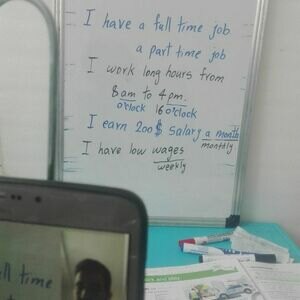 I have a full time job
a part time job
I work long hours from
8 am to 4 pm.
o'clock 16 o'clock
I earn 200$ salary a month
monthly
I have low wages
weekly
ll time